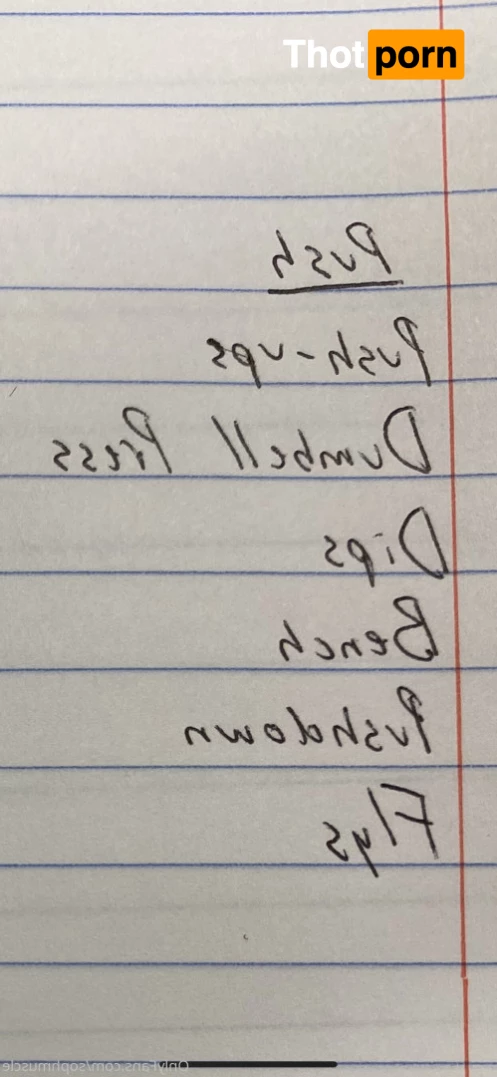 Thot porn
Push
Push-ups
Dumbell Press
Dips
Bench
Pushdown
Flys
OnlyFans.com/sophmuscle